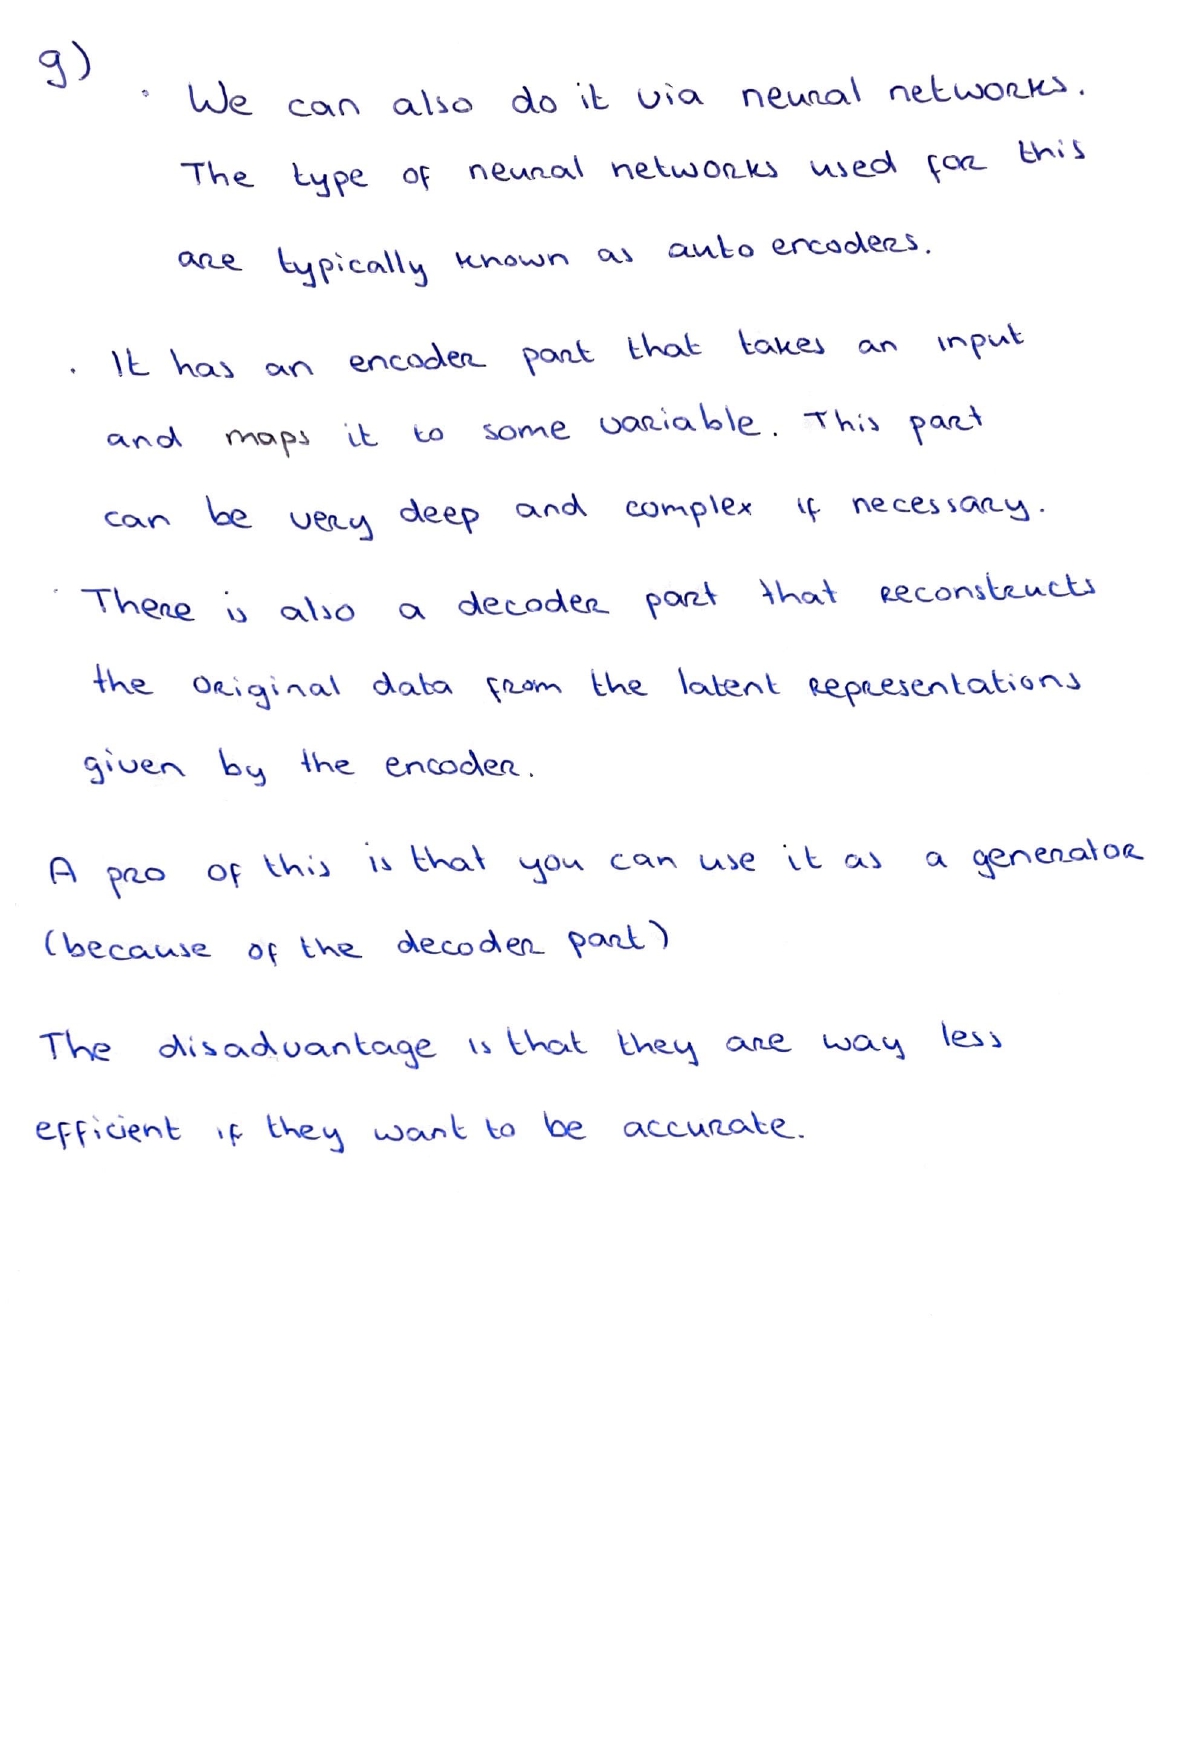 g)
· We can also do it via neural networks.
The type of neural networks used for this
are typically known as auto encoders.
· It has an encoder part that takes an input
and maps it to some variable. This part
can be very deep and complex if necessary.
· There is also a decoder part that reconstructs
the original data from the latent representations
given by the encoder.
A pro of this is that you can use it as a generator
(because of the decoder part)
The disadvantage is that they are way less
efficient if they want to be accurate.